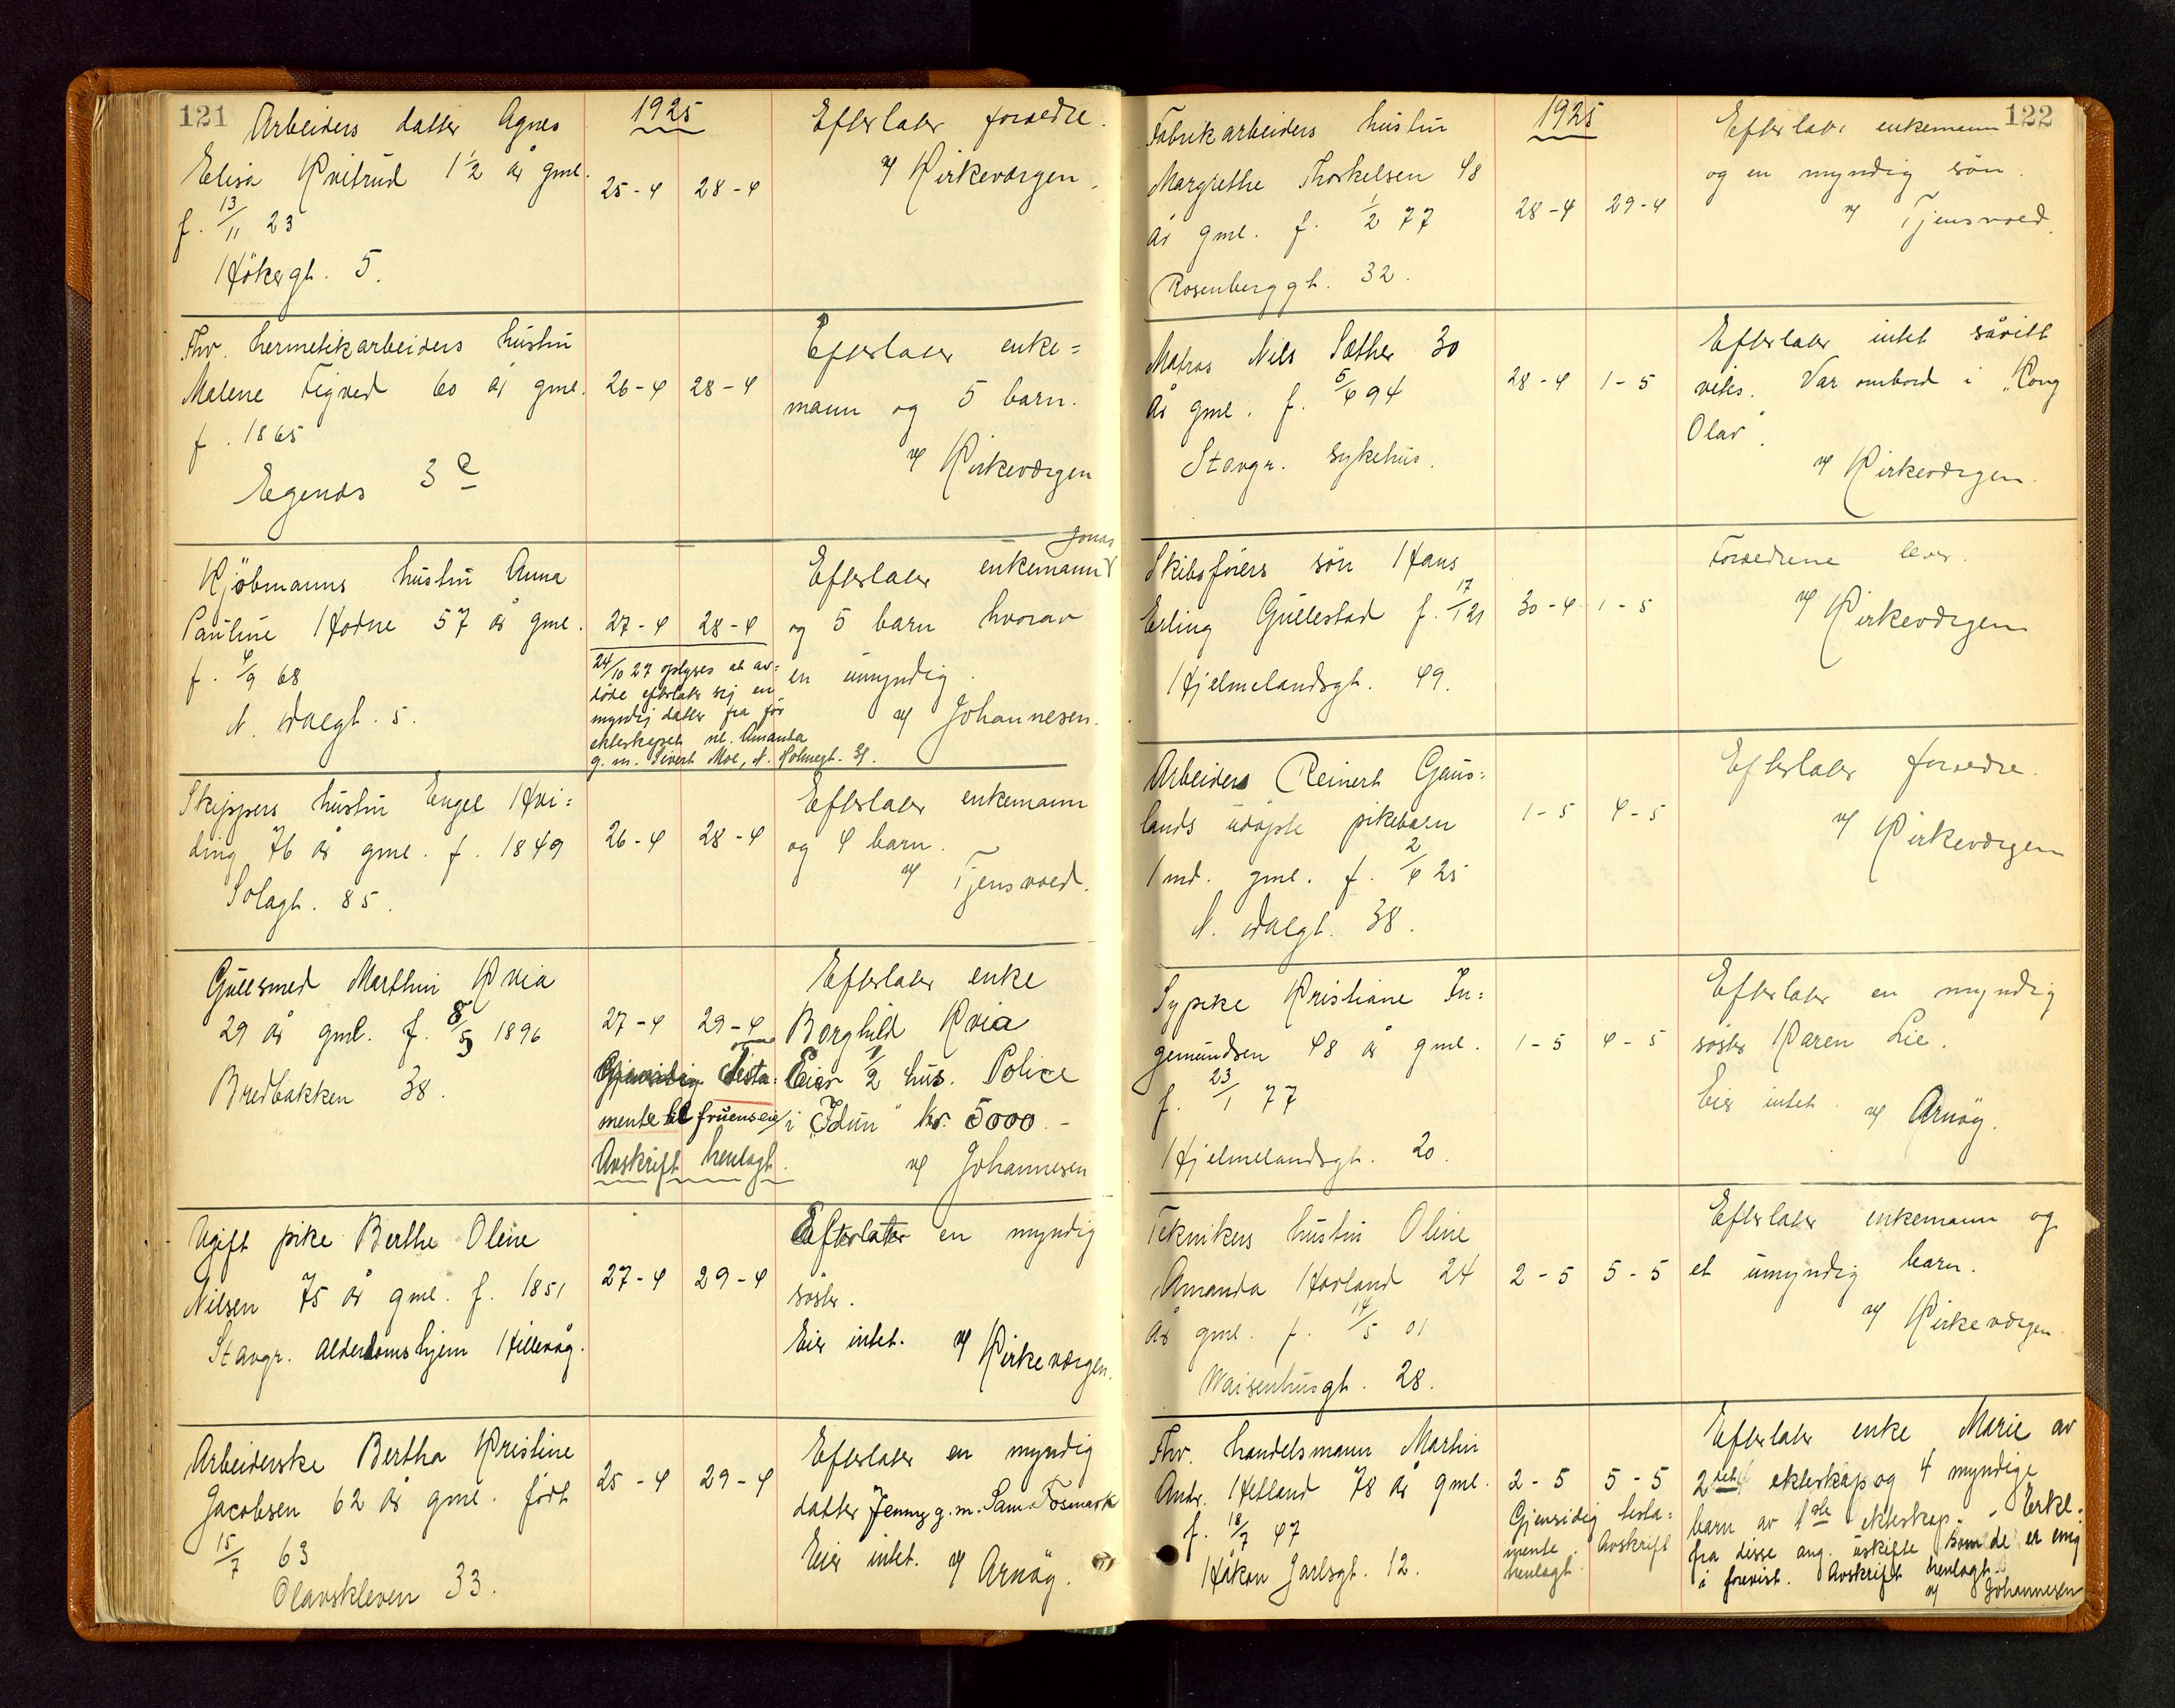 121
1925
Arbeiders datter Agnes
Elisa Kvitrud 1 1/2 år gml.
f. 13/11 23
Høkergt. 5.
25-4 28-4
Efterlater forældre.
v/ Kirkeværgen.
Fhv. hermetikarbeiders hustru
Malene Tigved 60 år gml.
f. 1865
Egenæs 3 e
26-4 28-4
Efterlater enke=
mann og 5 barn.
v/ Kirkeværgen
Kjøbmanns hustru Anna
Pauline Hodne 57 år gml.
f. 4/9 68
N. Dalgt. 5.
27-4 28-4
24/10 27 oplyses at av=
døde efterlater sig en
myndig datter fra før
ekteskapet nl. Amanda
g. m. Sivert Moe, N. Holmegt. 31.
Jonas
Efterlater enkemann
og 5 barn hvorav
en umyndig.
v/ Johannesen.
Skippers hustru Engel Hvi=
ding 76 år gml. f. 1849
Solagt. 85.
26-4 28-4
Efterlater enkemann
og 4 barn.
v/ Tjensvoed.
Gullsmed Marthin Kvia
29 år gml. f. 8/5 1896
Bredbakken 38.
27-4 29-4
Gjensidig testa=
mente til fruens eie
Avskrift henlagt.
Efterlater enke
Borghild Kvia
Eier 1/2 hus. Police
i "Idun" kr. 5000.-
v/ Johannesen
Ugift pike Berthe Oline
Nilsen 75 år gml. f. 1851
Stavgr. Alderdomshjem Hillevåg.
27-4 29-4
Efterlater en myndig
søster.
Eier intet. v/ Kirkeværgen.
Arbeiderske Bertha Kristine
Jacobsen 62 år gml. født
15/7 63
Olavskleven 33.
25-4 29-4
Efterlater en myndig
datter Jenny g.m. Sam. Fosmark
Eier intet. v/ Arnøy.
122
1925
Fabrikarbeiders hustru
Margrethe Thorkelsen 48
år gml. f. 1/2 77
Rosenberggt. 32.
28-4 29-4
Efterlat. enkemann
og en myndig søn.
v/ Tjensvoed.
Matros Nils Sæther 30
år gml. f. 5/6 94
Stavgr. sykehus.
28-4 1-5
Efterlater intet såvitt
vites. Var ombord i "Kong
Olav".
v/ Kirkeværgen.
Skibsførers søn Hans
Erling Gullestad f. 17/1 21
Hjelmelandsgt. 49.
30-4 1-5
Forældrene lever.
v/ Kirkeværgen
Arbeiders Reinert Gaus=
lands udøpte pikebarn
1 md. gml. f. 2/4 25
N. Dalgt. 38.
1-5 4-5
Efterlater forældre.
v/ Kirkeværgen
Sypike Kristiane In=
gemundsen 48 år gml.
f. 23/1 77
Hjelmelandsgt. 20.
1-5 4-5
Efterlater en myndig
søster Karen Lie.
Eier intet. v/ Arnøy.
Teknikers hustru Oline
Amanda Havland 24
år gml. f. 14/5 01
Waisenhusgt. 28.
2-5 5-5
Efterlater enkemann og
et umyndig barn.
v/ Kirkeværgen.
Fhv. handelsmann Martin
Andr. Hetland 78 år gml.
f. 18/7 47
Håkon Jarlsgt. 12.
2-5 5-5
Gjensidig testa=
mente. Avskrift
henlagt.
Efterlater enke Marie av
2det ekteskap og 4 myndige
barn av 1ste ekteskap. - Erkl.
fra disse ang. uskifte som de er enig
i forevist. Avskrift henlagt.
v/ Johannesen